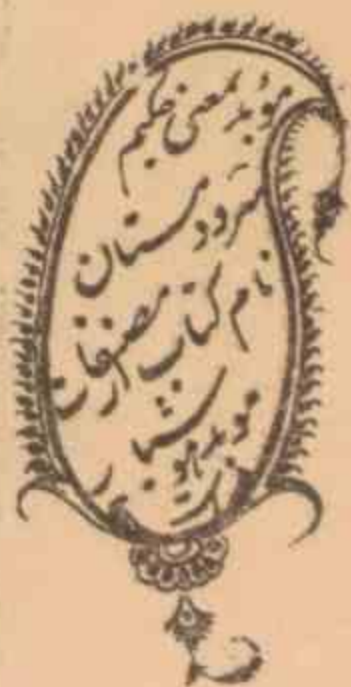 موبد بمعنی حکیم
سرودمستان
نام کتاب از مصنفات
موبد هوشیار
است